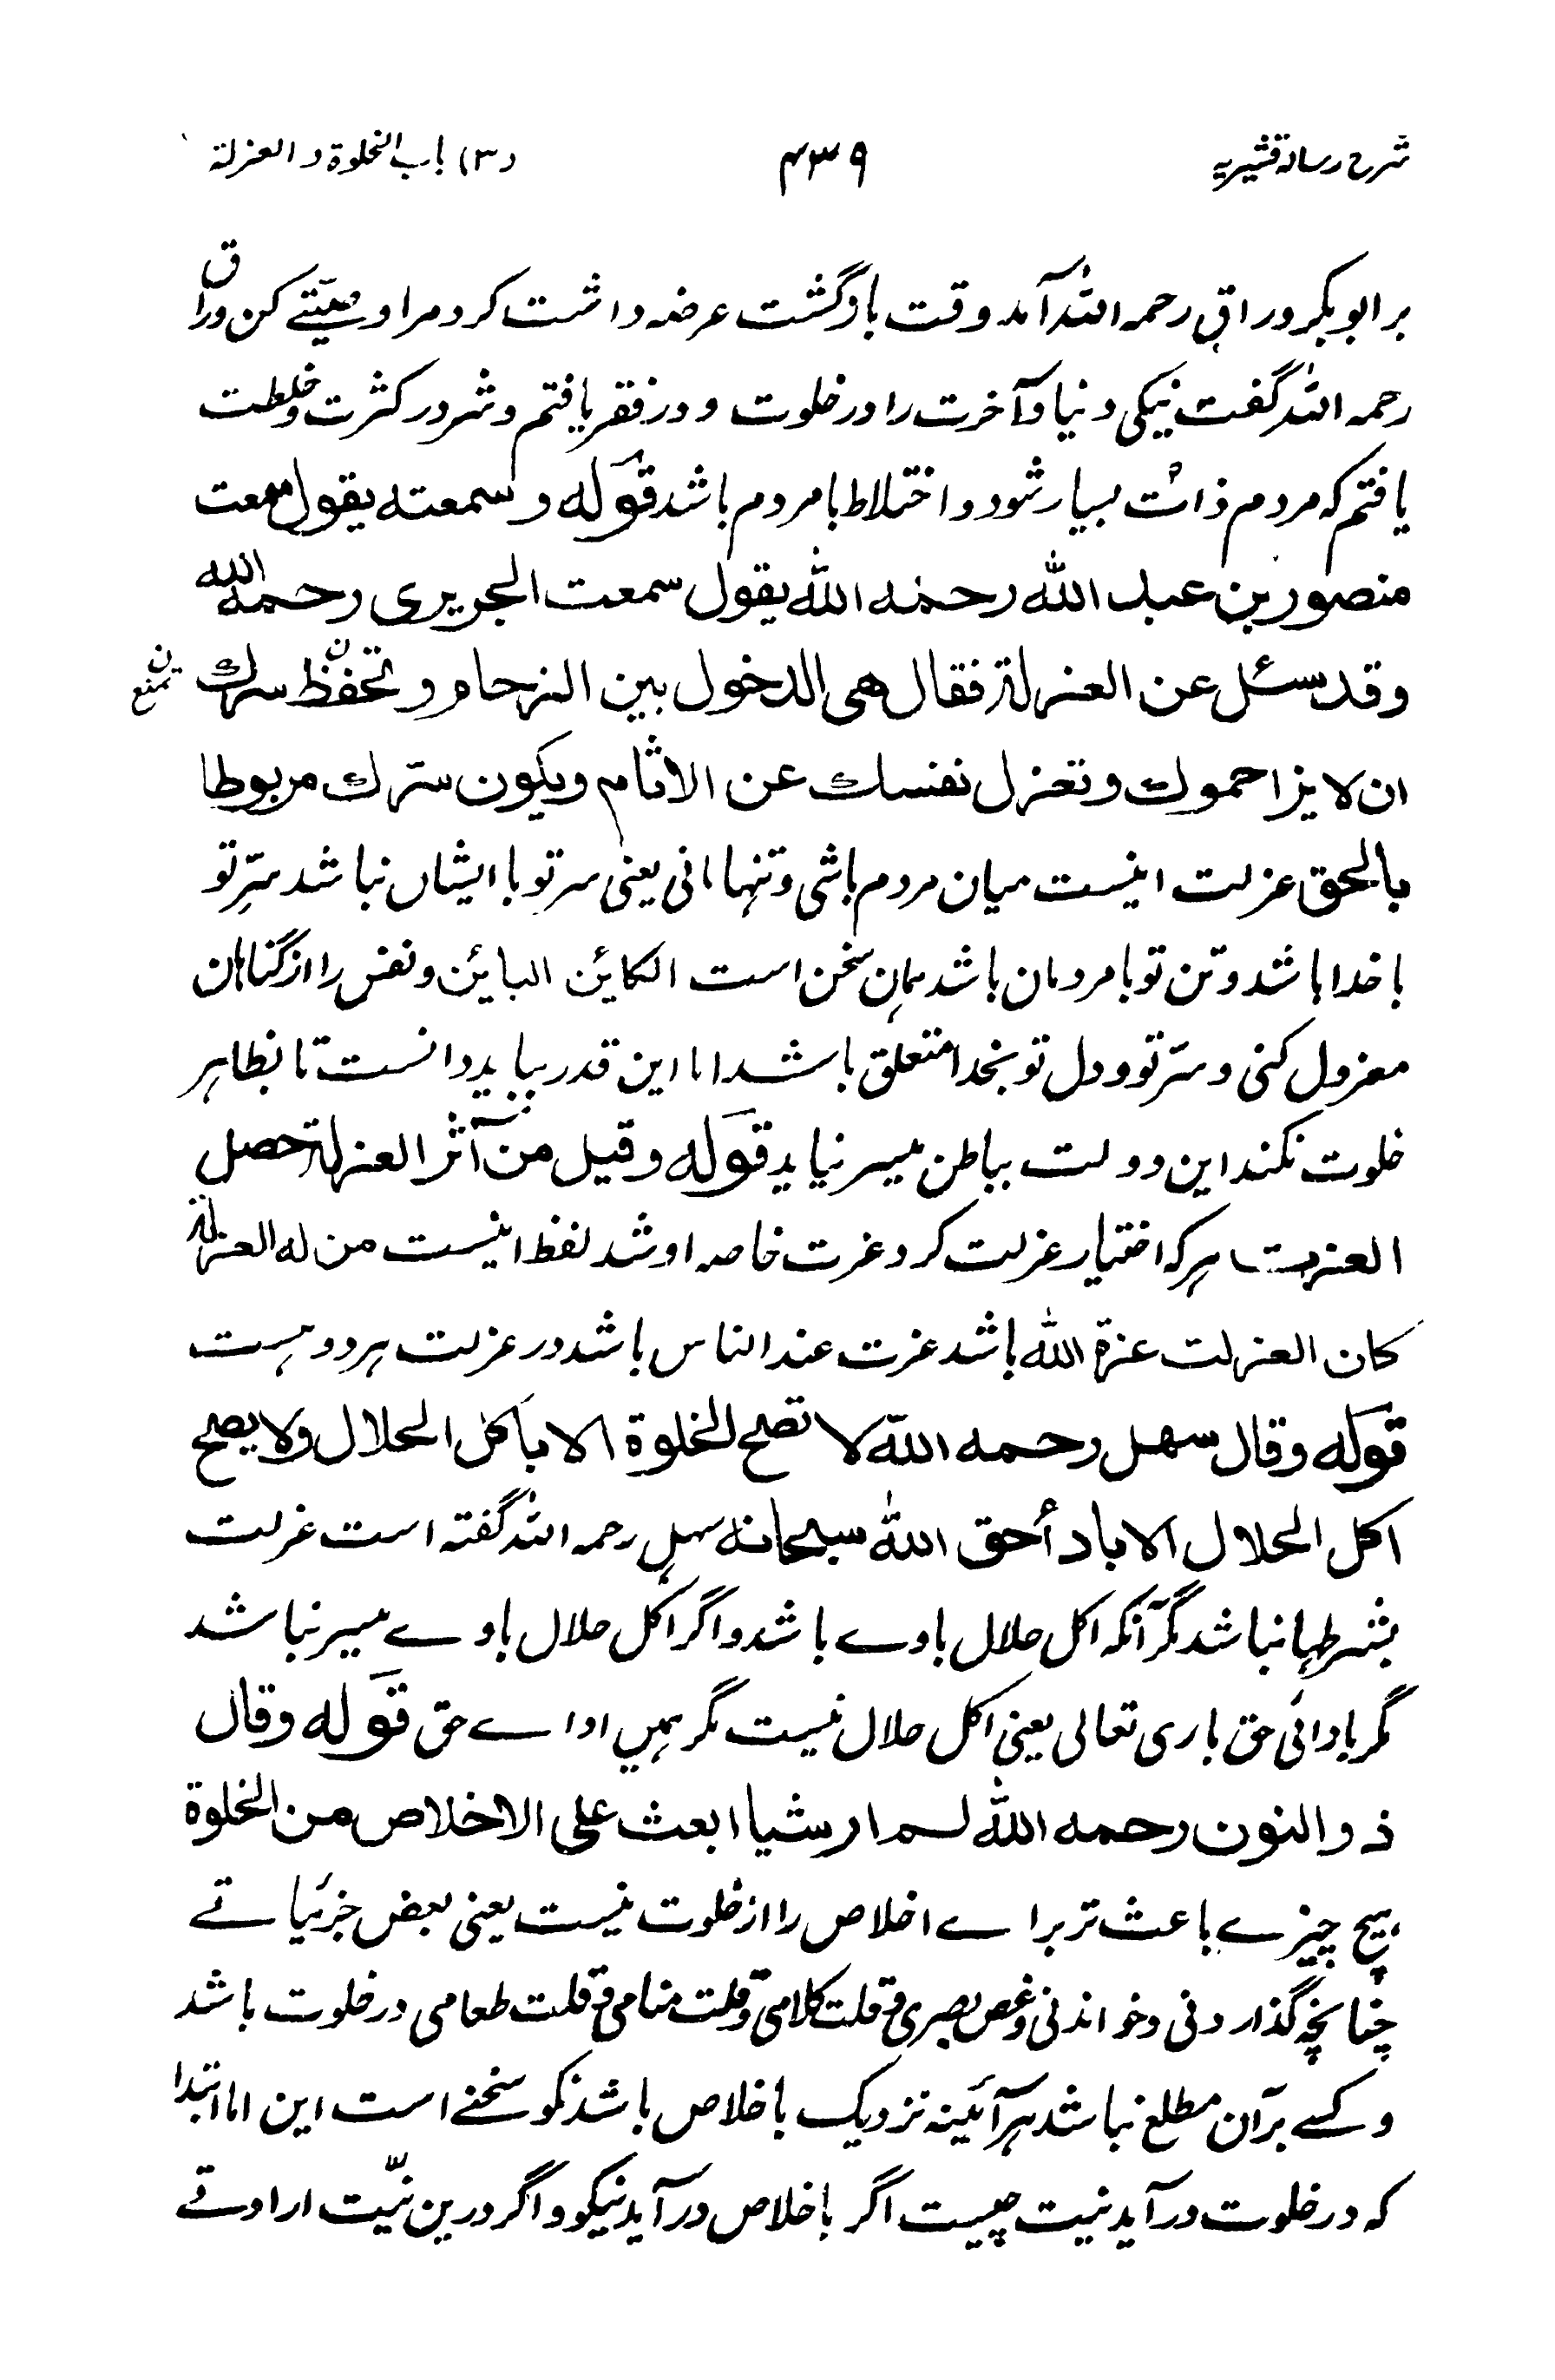 شرح رسالہ قشیریہ ۴۳۹ (۳) باب الخلوۃ و العزلۃ
بر ابوبکر وراق رحمہ اللہ آمد وقت بازگشت عرضہ داشت کرد مرا وصیتے کن وراق
رحمہ اللہ گفت نیکی دنیا و آخرت را در خلوت و در فقر یافتم و شر در کثرت و خلطت
یافتم کہ مردم ذات بسیار شود و اختلاط با مردم باشد قولہ وسمعتہ یقول سمعت
منصور بن عبد اللہ رحمہ اللہ یقول سمعت الجریری رحمہ اللہ
وقد سئل عن العزلۃ فقال ھی الدخول بین الزحام و تحفظ سرك
ن تمنع
ان لا یزاحموك وتعزل نفسك عن الاثام ویکون سرّك مربوطا
بالحق عزلت اینست میان مردم باشی و تنہا مانی یعنی سر تو با ایشاں نباشد سرّ تو
با خدا باشد و تن تو با مردمان باشد ہمان سخن است الکائن البائن و نفس را از گناہان
معزول کنی و سرّ تو و دل تو بخدا متعلق باشد اما این قدر بباید دانست تا بظاہر
خلوت نکند این دولت بباطن میسر نیاید قولہ وقیل من آثر العزلۃ حصل
العزلت ہرکہ اختیار عزلت کرد عزت خاصہ او شد لفظ اینست من لہ العزلۃ
کان العزلت عزۃ اللہ باشد عزت عند الناس باشد در عزلت ہر دو ہست
قولہ وقال سھل رحمہ اللہ لا تصلح الخلوۃ الا باکل الحلال ولا یصح
اکل الحلال الا باد أحق اللہ سبحانہ سہل رحمہ اللہ گفتہ است عزلت
بشرطہا نباشد مگر آنکہ اکل حلال باوے باشد و اگر اکل حلال باوے میسر نباشد
مگر بادائی حق باری تعالی یعنی اکل حلال نیست مگر ہمیں اداے حق قولہ وقال
ذو النون رحمہ اللہ لم ار شیا ابعث علی الاخلاص من الخلوۃ
ہیچ چیزے باعث تر براے اخلاص را از خلوت نیست یعنی بعض جزئیاتے
چنانچہ گذاردنی و خواندنی و غمص بصری و قلت کلامی و قلت منامی و قلت طعامی در خلوت باشد
و کسے برآن مطلع نباشد ہر آئینہ نزدیک باخلاص باشد نکو سخنے است این اما ابتدا
کہ در خلوت درآید نیت چیست اگر باخلاص درآید نیکو و اگر درین نیّت ارادتے